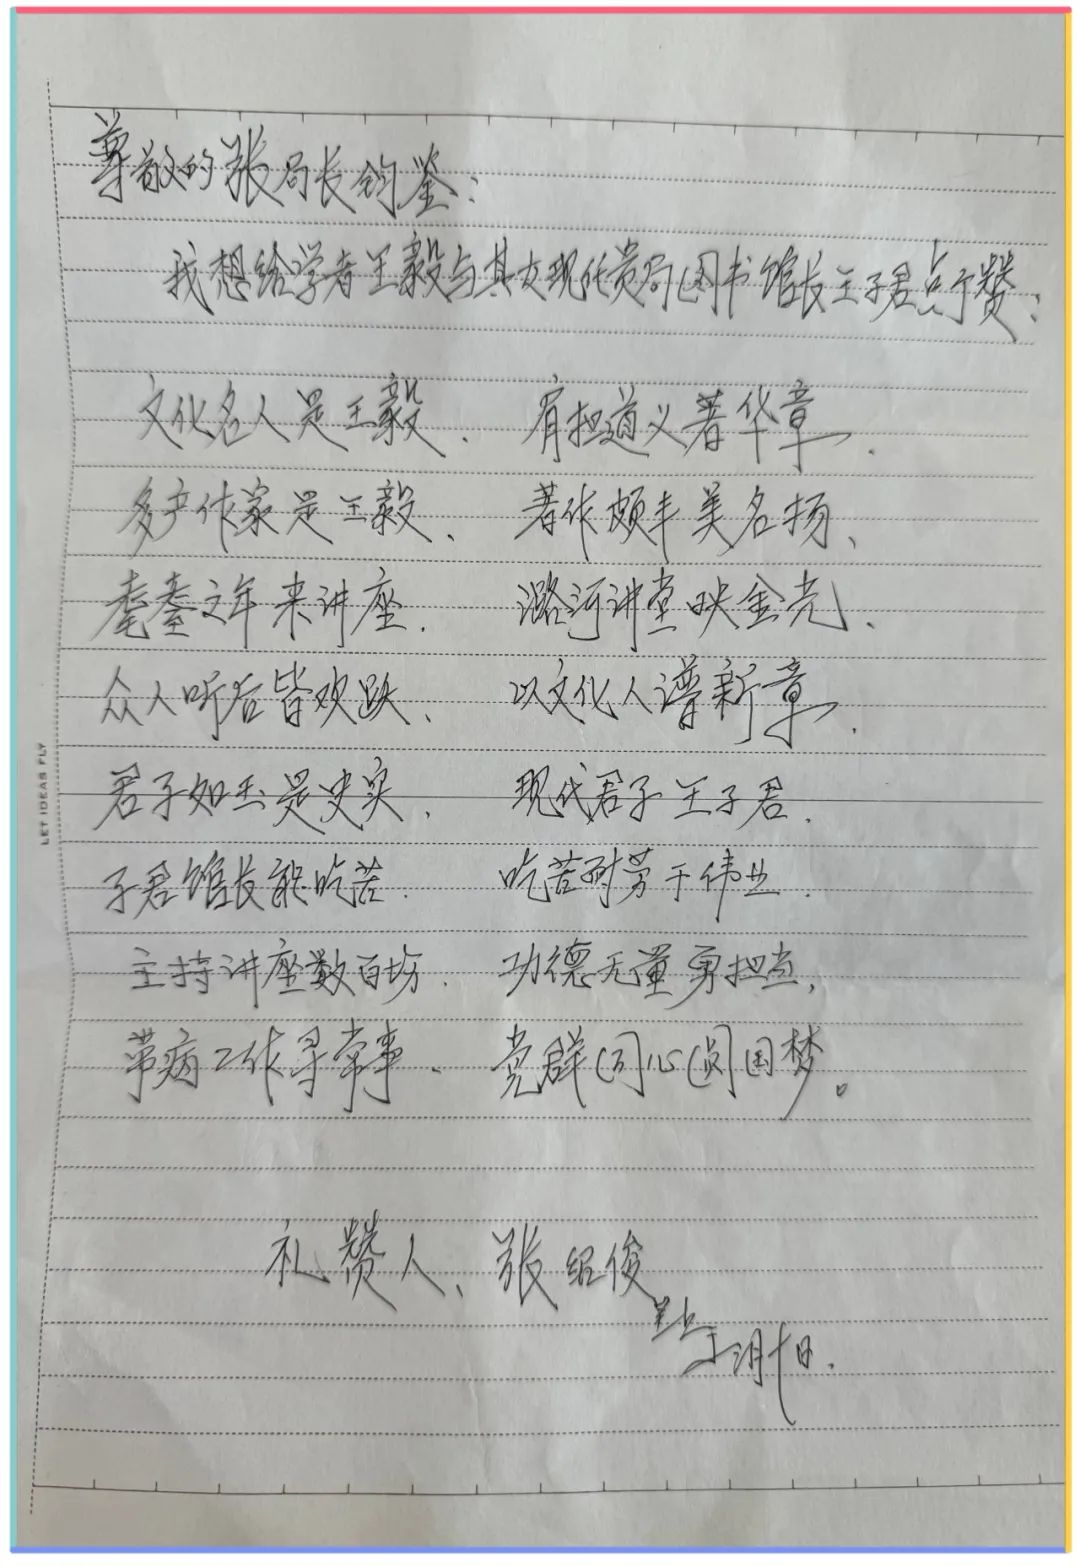 尊敬的张局长钧鉴：
我想给学者王毅与其友现任贵局图书馆长王子君点个赞：
文化名人是王毅、 肩担道义著华章.
多产作家是王毅、 著作颇丰美名扬、
耄耋之年来讲座. 潞河讲堂映金光、
众人听后皆欢跃、 以文化人谱新章.
君子如玉是史实、 现代君子王子君.
子君馆长能吃苦. 吃苦耐劳干伟业.
主持讲座数百场. 功德无量勇担当,
带病工作寻常事、 党群同心圆国梦。
礼赞人、张绍俊
LET IDEAS FLY